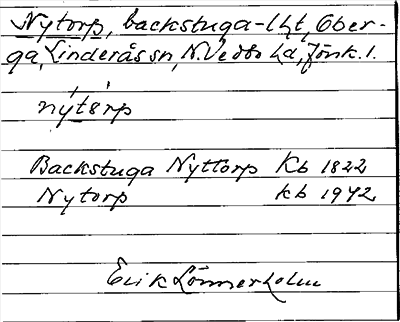 Nytorp, backstuga-lht, Ober-
ga, Linderås sn, N. Vedbo hd, Jönk. l.
nýtórp
Backstuga Nyttorp Kb 1822
Nytorp kb 1942
Erik Lönnerholm